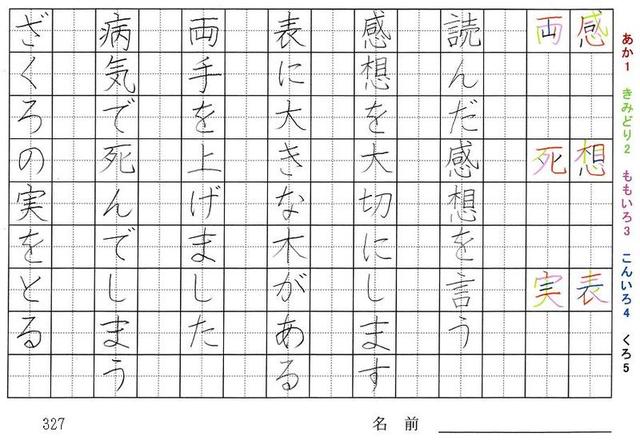 あか1 きみどり2 ももいろ3 こんいろ4 くろ5
感想表
両死実
読んだ感想を言う
感想を大切にします
表に大きな木がある
両手を上げました
病気で死んでしまう
ざくろの実をとる
327
名前